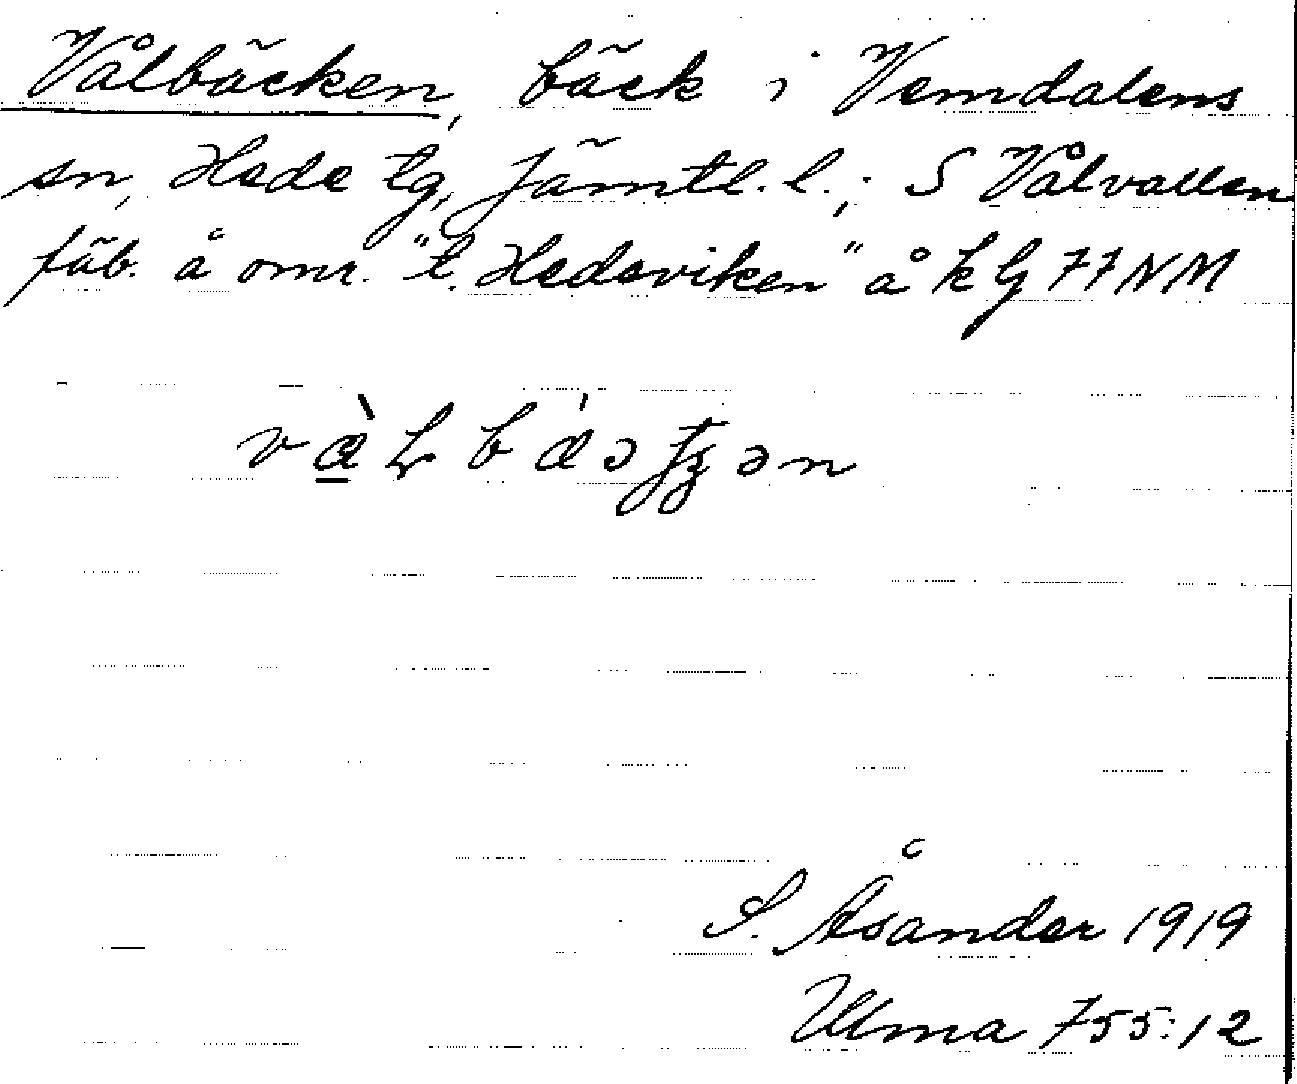 Vålbäcken, bäck i Vemdalens
sn, Hede tg, Jämtl. l.; S Vålvallen
fäb. å omr. "t. Hedeviken" å kG 77NM
S. Åsander 1919
Ulma 755:12